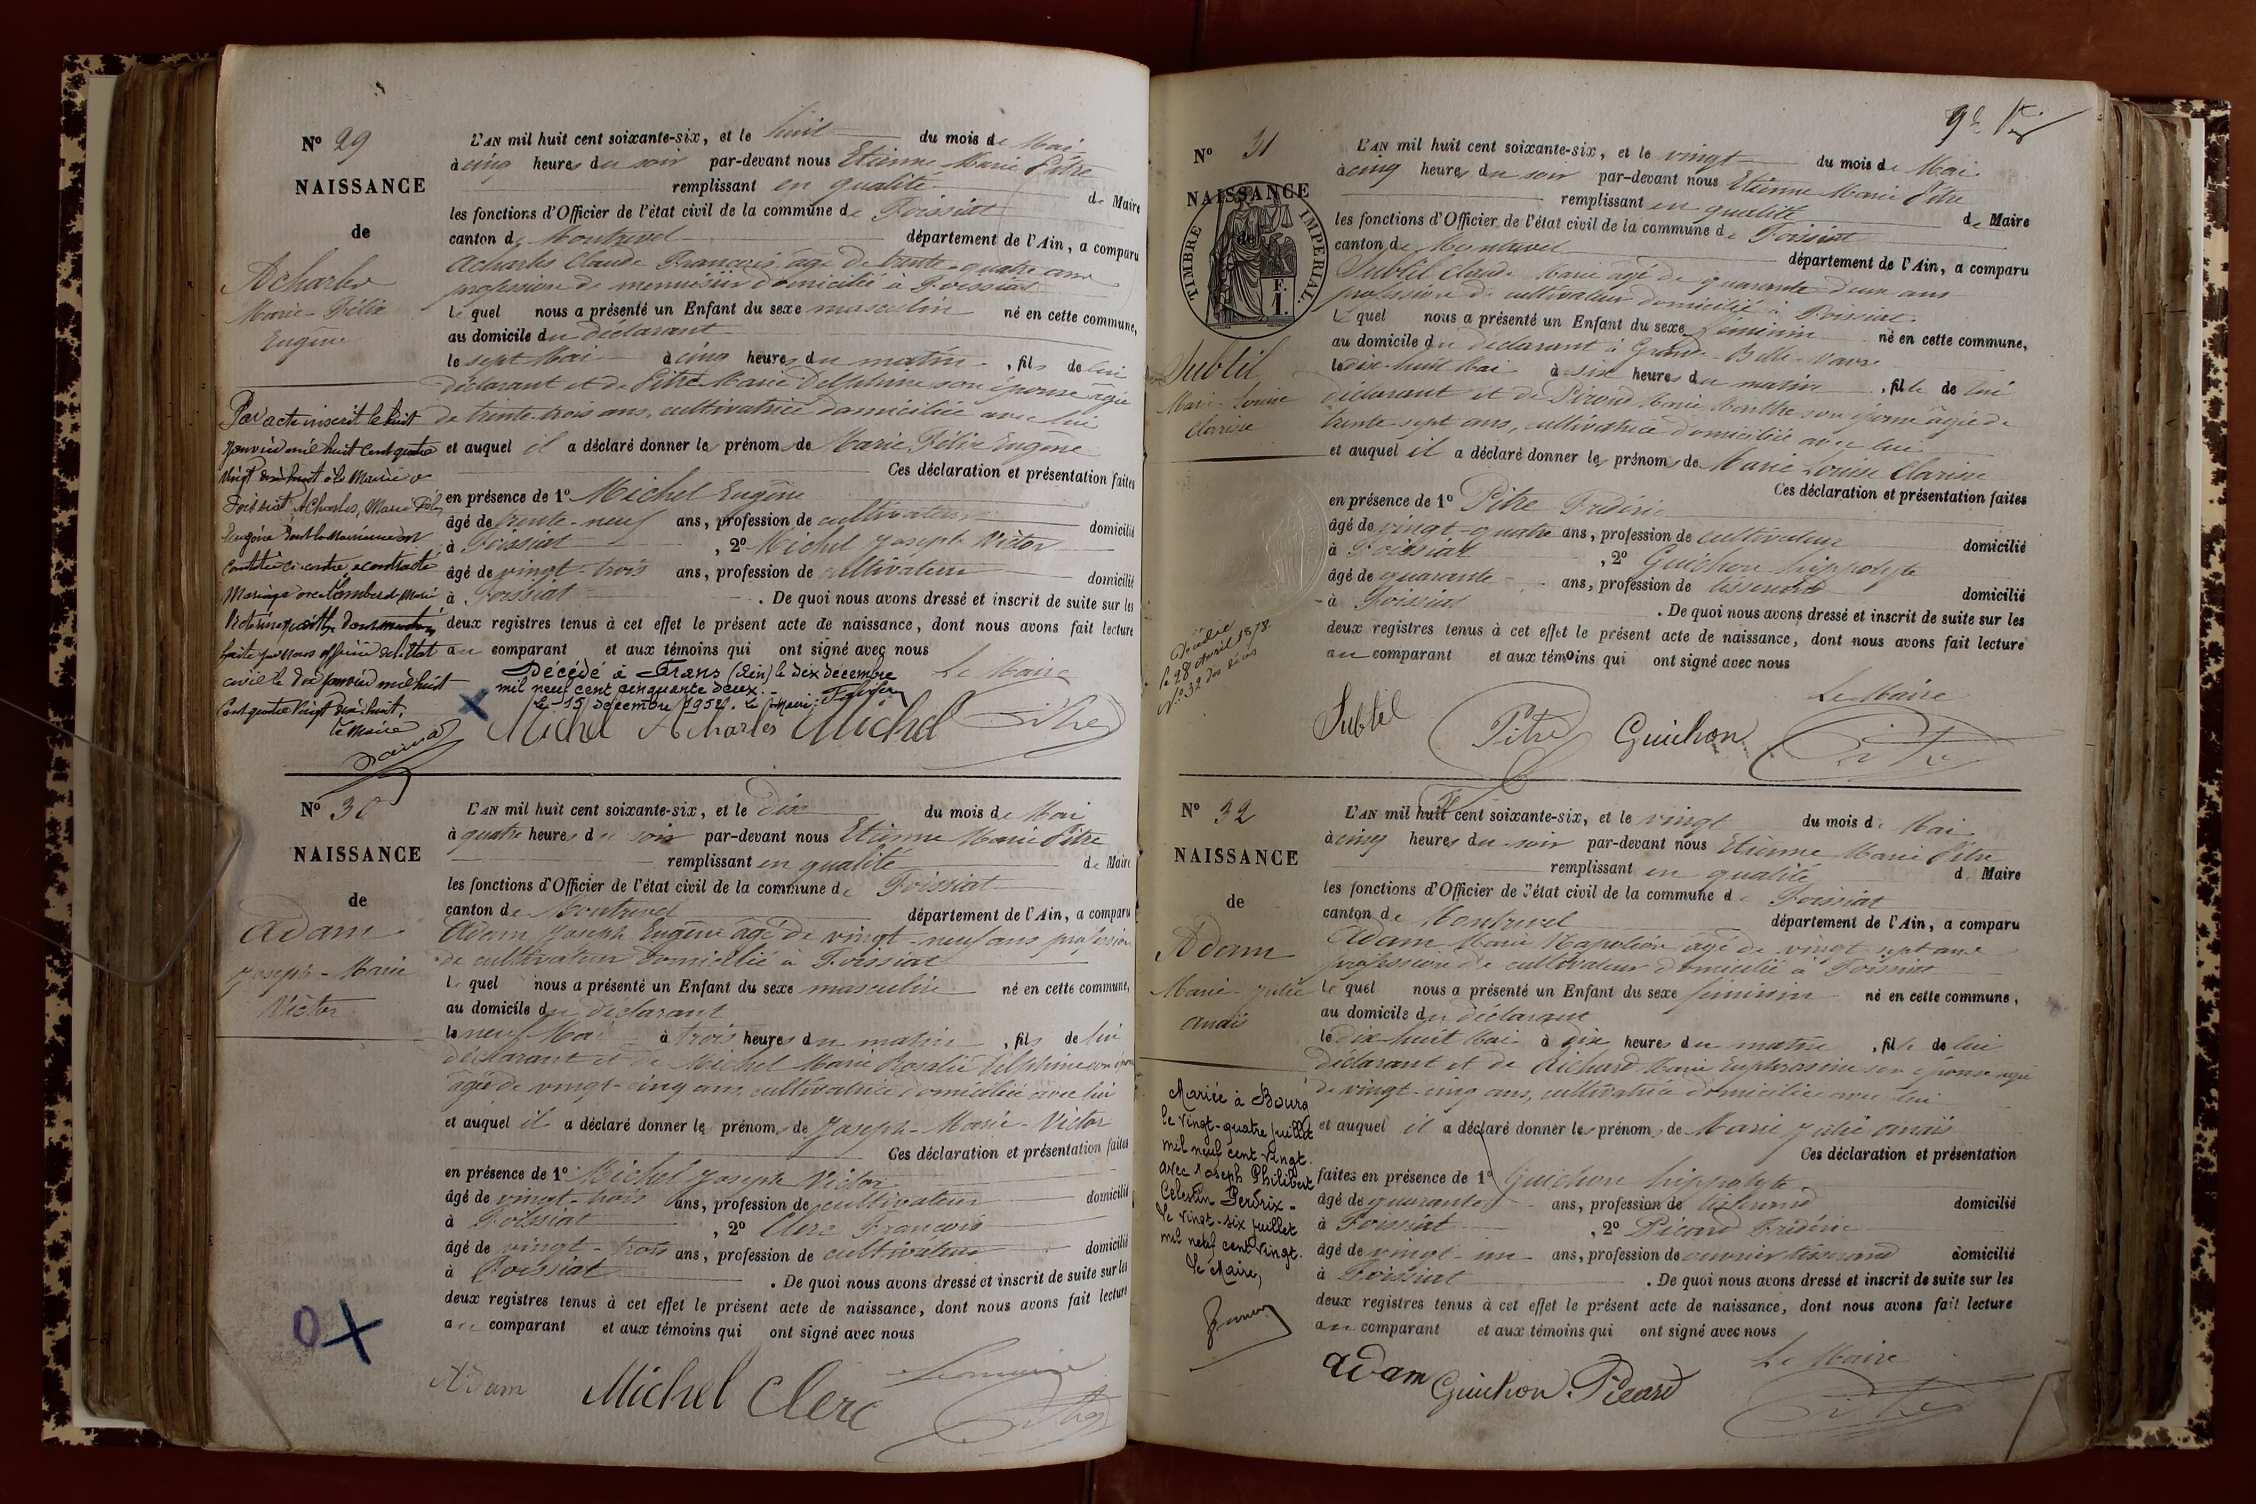 Nº 29
NAISSANCE
de
Acharles
Marie-Félix
Eugène
L'AN mil huit cent soixante-six, et le huit du mois de Mai
à cinq heures du soir par-devant nous Etienne Marie Pitre
remplissant en qualité de Maire
les fonctions d'Officier de l'état civil de la commune de Foissiat
canton de Montrevel département de l'Ain, a comparu
Acharles Claude François âgé de trente-quatre ans
profession de menuisier domicilié à Foissiat
lequel nous a présenté un Enfant du sexe masculin né en cette commune,
au domicile du déclarant
le sept Mai à cinq heures du matin, fils de lui
déclarant et de Pitre Marie Delphine son épouse âgée
de trente-trois ans, cultivatrice domiciliée avec lui
et auquel il a déclaré donner les prénoms de Marie Félix Eugène
Ces déclaration et présentation faites
en présence de 1º Michel Eugène
âgé de trente-neuf ans, profession de cultivateur domicilié
à Foissiat, 2º Michel Joseph Victor
âgé de vingt-trois ans, profession de cultivateur domicilié
à Foissiat. De quoi nous avons dressé et inscrit de suite sur les
deux registres tenus à cet effet le présent acte de naissance, dont nous avons fait lecture
au comparant et aux témoins qui ont signé avec nous
Le Maire
Décédé à Frans (Ain) le dix décembre
mil neuf cent cinquante deux.-
Le 15 décembre 1952. Le Maire:
Michel Acharles Michel Pitre
Par acte inscrit le huit
Janvier mil huit cent quatre
vingt dix huit à la Mairie de
Foissiat Acharles, Marie Félix
Eugène dont la naissance est
constatée ci-contre a contracté
Mariage avec Lombard Marie
faite par Nous officier de l'Etat
civil le dix Janvier mil huit
cent quatre vingt dix huit.
Le Maire
Nº 30
NAISSANCE
de
Adam
Joseph-Marie
Victor
L'AN mil huit cent soixante-six, et le dix du mois de Mai
à quatre heures du soir par-devant nous Etienne Marie Pitre
remplissant en qualité de Maire
les fonctions d'Officier de l'état civil de la commune de Foissiat
canton de Montrevel département de l'Ain, a comparu
Adam Joseph Eugène âgé de vingt-neuf ans profession
de cultivateur domicilié à Foissiat
lequel nous a présenté un Enfant du sexe masculin né en cette commune,
au domicile du déclarant
le neuf Mai à trois heures du matin, fils de lui
déclarant et de Michel Marie Rosalie Delphine son épouse
âgée de vingt-cinq ans, cultivatrice domiciliée avec lui
et auquel il a déclaré donner les prénoms de Joseph-Marie-Victor
Ces déclaration et présentation faites
en présence de 1º Michel Joseph Victor
âgé de vingt-trois ans, profession de cultivateur domicilié
à Foissiat, 2º Clerc François
âgé de vingt-trois ans, profession de cultivateur domicilié
à Foissiat. De quoi nous avons dressé et inscrit de suite sur les
deux registres tenus à cet effet le présent acte de naissance, dont nous avons fait lecture
au comparant et aux témoins qui ont signé avec nous
Le maire
Adam Michel Clerc Pitre
Nº 31
NAISSANCE
de
TIMBRE IMPERIAL.
1 F.
Subtil
Marie-Louise
Clarisse
L'AN mil huit cent soixante-six, et le vingt du mois de Mai
à cinq heures du soir par-devant nous Etienne Marie Pitre
remplissant en qualité de Maire
les fonctions d'Officier de l'état civil de la commune de Foissiat
canton de Montrevel département de l'Ain, a comparu
Subtil Claude Marie âgé de quarante deux ans
profession de cultivateur domicilié à Foissiat.
lequel nous a présenté un Enfant du sexe féminin né en cette commune,
au domicile du déclarant à Grand-Belle-Vavre
le dix-huit Mai à six heures du matin, fille de lui
déclarant et de Piroud Marie Marthe son épouse âgée de
trente sept ans, cultivatrice domiciliée avec lui
et auquel il a déclaré donner les prénoms de Marie Louise Clarisse
Ces déclaration et présentation faites
en présence de 1º Pitre Frédéric
âgé de vingt-quatre ans, profession de cultivateur domicilié
à Foissiat, 2º Guichon hippolyte
âgé de quarante ans, profession de tisserand domicilié
à Foissiat. De quoi nous avons dressé et inscrit de suite sur les
deux registres tenus à cet effet le présent acte de naissance, dont nous avons fait lecture
au comparant et aux témoins qui ont signé avec nous
Le Maire
Subtil Pitre Guichon Pitre
Décédée
le 28 Avril 1878
Nº 32 des décès
Nº 32
NAISSANCE
de
Adam
Marie-Julie
anaïs
L'AN mil huit cent soixante-six, et le vingt du mois de Mai
à cinq heures du soir par-devant nous Etienne Marie Pitre
remplissant en qualité de Maire
les fonctions d'Officier de l'état civil de la commune de Foissiat
canton de Montrevel département de l'Ain, a comparu
Adam Marie Napoléon âgé de vingt sept ans
profession de cultivateur domicilié à Foissiat
lequel nous a présenté un Enfant du sexe féminin né en cette commune,
au domicile du déclarant
le dix-huit Mai à dix heures du matin, fille de lui
déclarant et de Richard Marie Euphrosine son épouse âgée
de vingt-cinq ans, cultivatrice domiciliée avec lui
et auquel il a déclaré donner les prénoms de Marie Julie anaïs
Ces déclaration et présentation
faites en présence de 1º Guichon hippolyte
âgé de quarante ans, profession de tisserand domicilié
à Foissiat, 2º Picard Frédéric
âgé de vingt-un ans, profession de ouvrier tisserand domicilié
à Foissiat. De quoi nous avons dressé et inscrit de suite sur les
deux registres tenus à cet effet le présent acte de naissance, dont nous avons fait lecture
au comparant et aux témoins qui ont signé avec nous
Le Maire
adam Guichon Picard Pitre
Mariée à Bourg
le vingt-quatre juillet
mil neuf cent vingt.
avec Joseph Philibert
Célestin Perdrix -
Le vingt-six juillet
mil neuf cent vingt.
Le Maire,